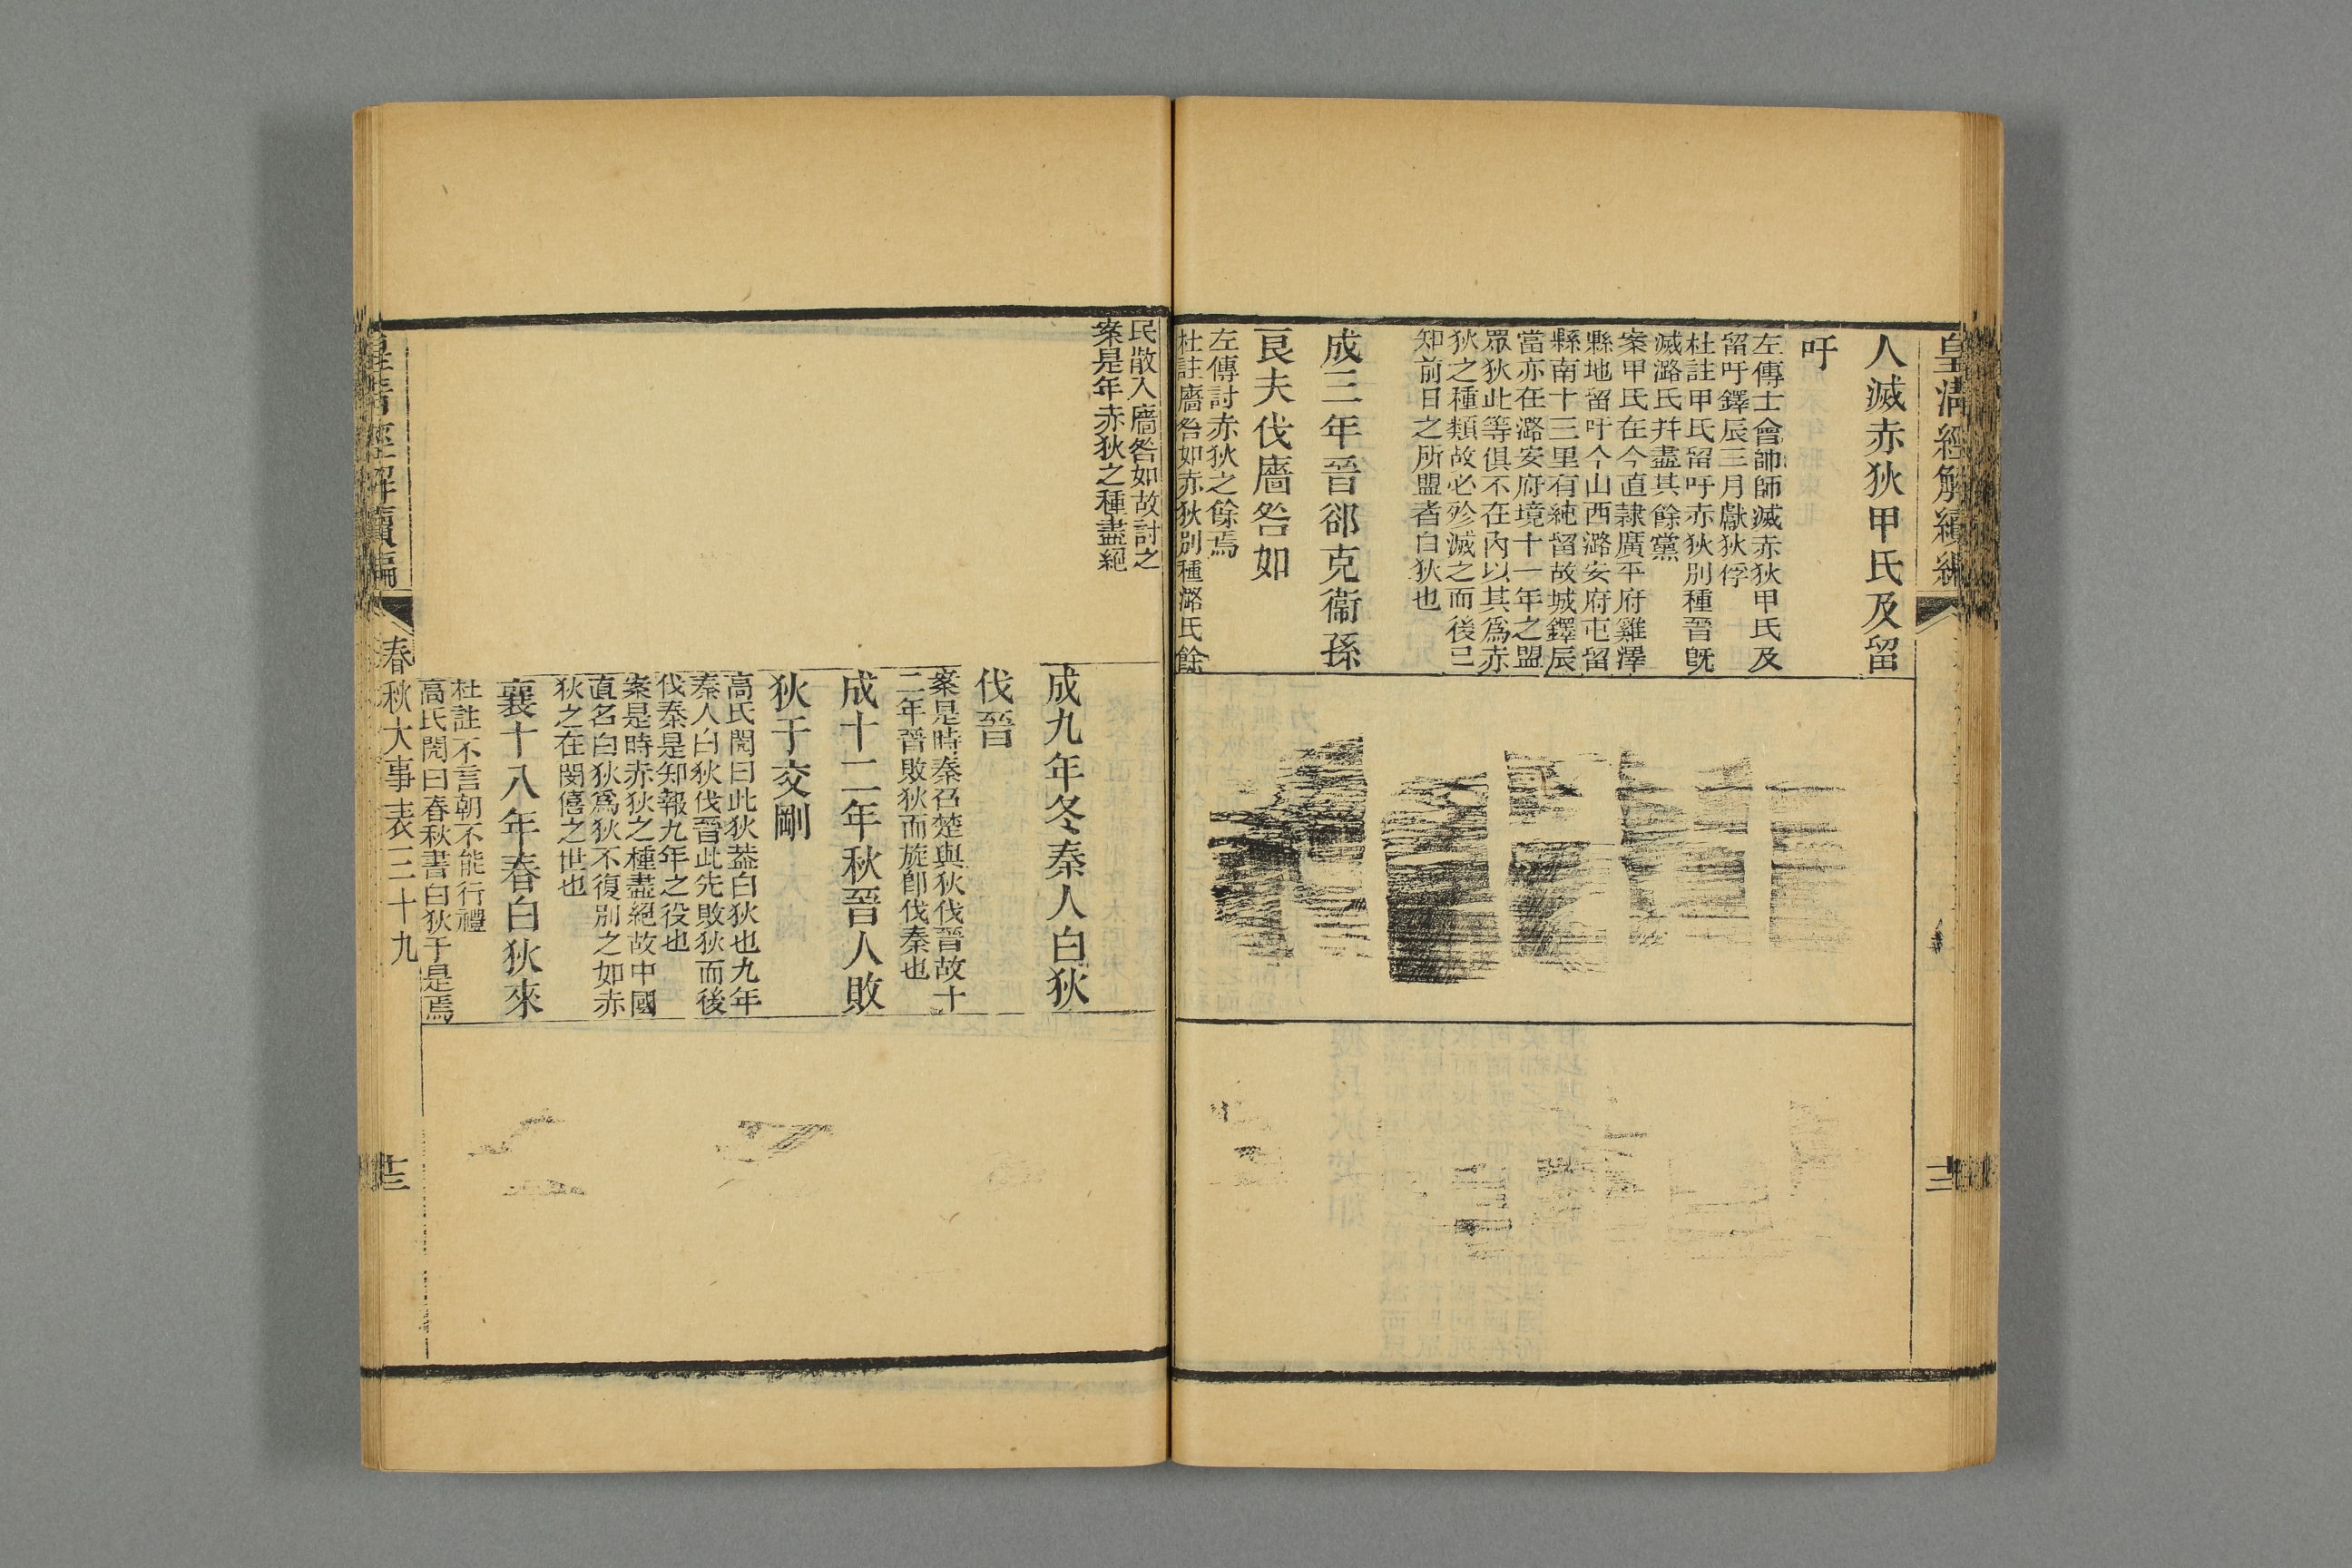 皇清經解續編
人滅赤狄甲氏及留
吁
左傳士會帥師滅赤狄甲氏及
留吁鐸辰三月獻狄俘
杜註甲氏留吁赤狄別種晉旣
滅潞氏幷盡其餘黨
案甲氏在今直隸廣平府雞澤
縣地留吁今山西潞安府屯留
縣南十三里有純留故城鐸辰
當亦在潞安府境十一年之盟
眾狄此等俱不在內以其爲赤
狄之種類故必殄滅之而後已
知前日之所盟者白狄也
成三年晉郤克衞孫
良夫伐廧咎如
左傳討赤狄之餘焉
杜註廧咎如赤狄別種潞氏餘
民散入廧咎如故討之
案是年赤狄之種盡絕
成九年冬秦人白狄
伐晉
案是時秦召楚與狄伐晉故十
二年晉敗狄而旋卽伐秦也
成十二年秋晉人敗
狄于交剛
高氏閌曰此狄葢白狄也九年
秦人白狄伐晉此先敗狄而後
伐秦是知報九年之役也
案是時赤狄之種盡絕故中國
直名白狄爲狄不復別之如赤
狄之在閔僖之世也
襄十八年春白狄來
杜註不言朝不能行禮
高氏閌曰春秋書白狄于是焉
皇清經解續編
春秋大事表三十九